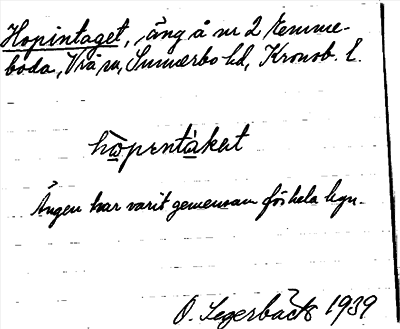 Hopintaget, äng å nr 2 Hemme-
boda, Virå sn, Sunnerbo hd, Kronob. l.
hopentaket
Ängen har varit gemensam för hela byn.
O. Segerbäck 1939